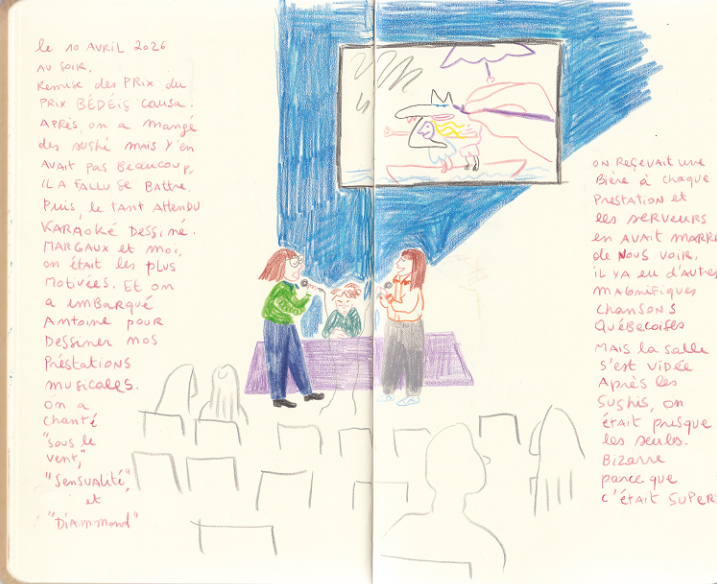 le 10 AVRIL 2026
AU SOIR,
Remise des PRIX du
PRIX BÉDÉIS CAUSA.
APRÈS, on a mangé
des sushi mais Y'en
AVAIT PAS BEAUCOUP,
IL A FALLU SE BATTRE.
Puis, le tant ATTENDU
KARAOKÉ DESSINÉ.
MARGAUX et moi,
on était les plus
motivées. ET on
a embarqué
Antoine pour
Dessiner nos
Préstations
musicales.
On a
chanté
"sous le
vent,"
"Sensualité",
et
"Diammond"
ON REÇEVAIT UNE
Bière à chaque
Prestation et
les serveurs
en AVAIT MARRE
de NOUS VOIR.
il YA eu d'autres
magnifiques
chansons
Québecoises
MAIS la salle
s'est vidée
Après les
Sushis, on
était presque
les seuls.
Bizarre
parce que
c'était SUPER